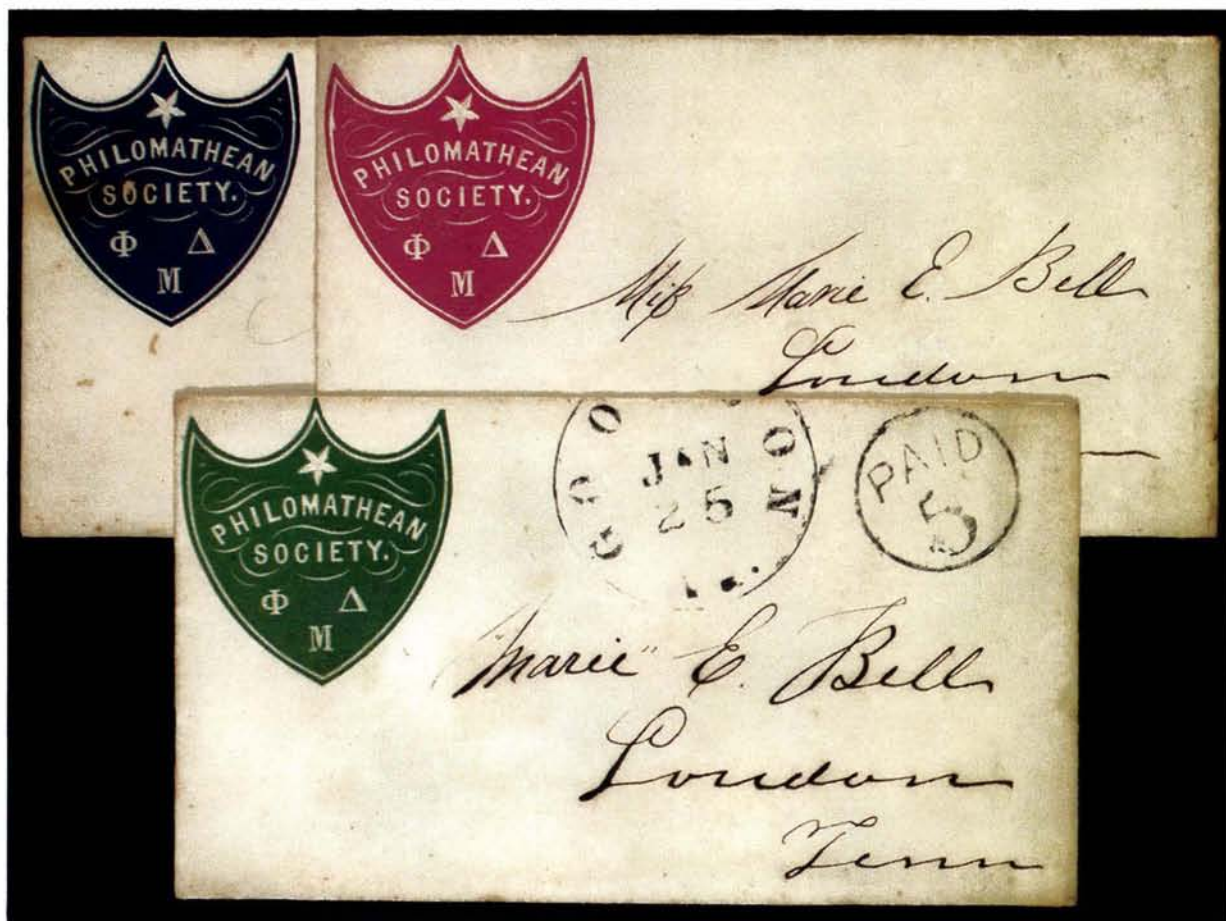 PHILOMATHEAN
SOCIETY.
Φ Δ
M
PHILOMATHEAN
SOCIETY.
Φ Δ
M
Miſs Marie E. Bell
Loudon
PHILOMATHEAN
SOCIETY.
Φ Δ
M
JAN
25
PAID
5
"Marie" E. Bell
Loudon
Tenn